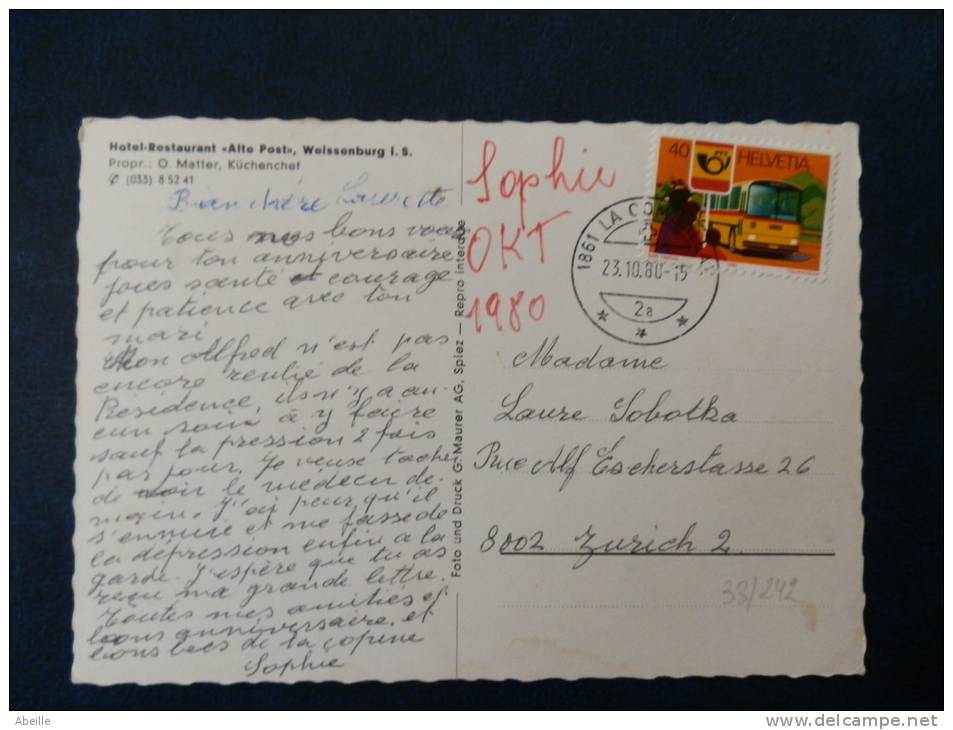 Hotel-Restaurant «Alte Post», Weissenburg i. S.
Propr.: O. Matter, Küchenchef
(033) 8 52 41
Bien chère Laurette
Tous mes bons voeux
pour ton anniversaire
joies santé et courage
et patience avec ton
mari
Mon Alfred n'est pas
encore rentré de la
Résidence, ils n'y a au-
cun soin à y faire
sauf la pression 2 fois
par jour. Je veux tacher
de voir le medecin de-
main. J'ai peur qu'il
s'ennuie et me fasse de
la dépression enfin à la
garde. J'espère que tu as
reçu ma grande lettre.
Toutes mes amitiés et
bons anniversaire, et
bons becs de la copine
Sophie
Foto und Druck G. Maurer AG, Spiez — Repro interdite
Sophie
OKT
1980
40
HELVETIA
1861 LA CO
23.10.80-15
2a
Madame
Laure Sobotka
Rue Alf Escherstasse 26
8002 Zurich 2
33/242
Abeille
www.delcampe.net